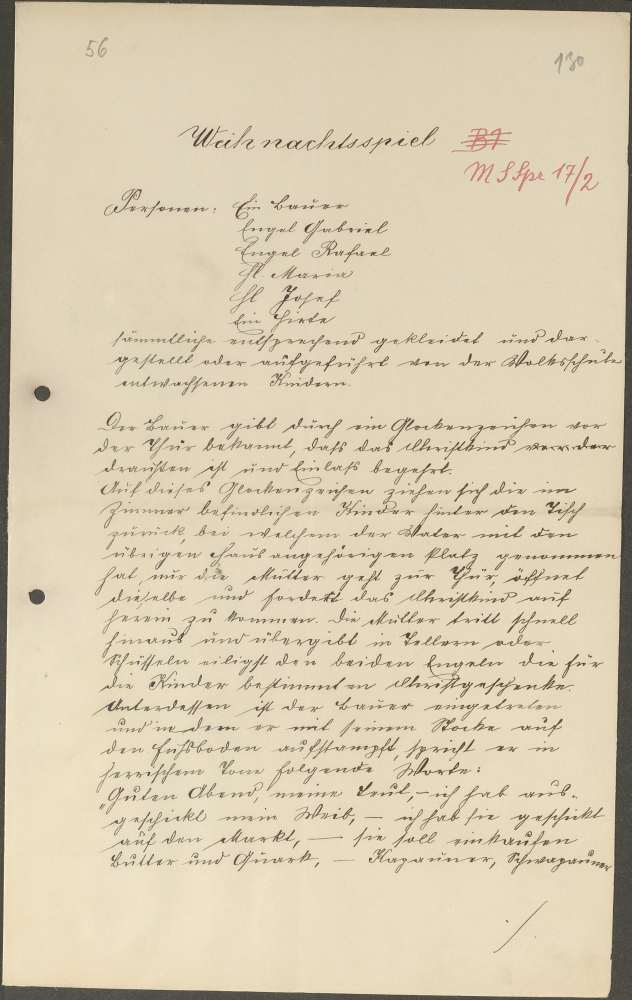 56
130
Weihnachtsspiel B1
M S Spr 17/2
Personen: Ein Bauer
Engel Gabriel
Engel Rafael
Hl. Maria
Hl Josef
Ein Hirte
sämmtliche entsprechend gekleidet und dar-
gestellt oder aufgeführt von der Volksschule
entwachsenen Kindern.
Der Bauer gibt durch ein Glockenzeichen vor
der Thür bekannt, dafs das Christkind vor der
draußen ist und Einlafs begehrt.
Auf dieses Glockenzeichen ziehen sich die im
Zimmer befindlichen Kinder hinter den Tisch
zurück, bei welchem der Vater mit den
übrigen Hausangehörigen Platz genommen
hat, nur die Mutter geht zur Thür, öffnet
dieselbe und fordert das Christkind auf
herein zu kommen. Die Mutter tritt schnell
hinaus und übergibt in Tellern oder
Schüsseln eiligst den beiden Engeln die für
die Kinder bestimmten Christgeschenke.
Unterdessen ist der Bauer eingetreten
und in dem er mit seinem Stocke auf
den Fufsboden aufstampft, spricht er in
herrischem Tone folgende Worte:
"Guten Abend, meine Leut, – ich hab aus-
geschickt mein Weib, – ich hab sie geschickt
auf den Markt, – sie soll einkaufen
Butter und Quark, – Kapauner, Schwapauner
./.